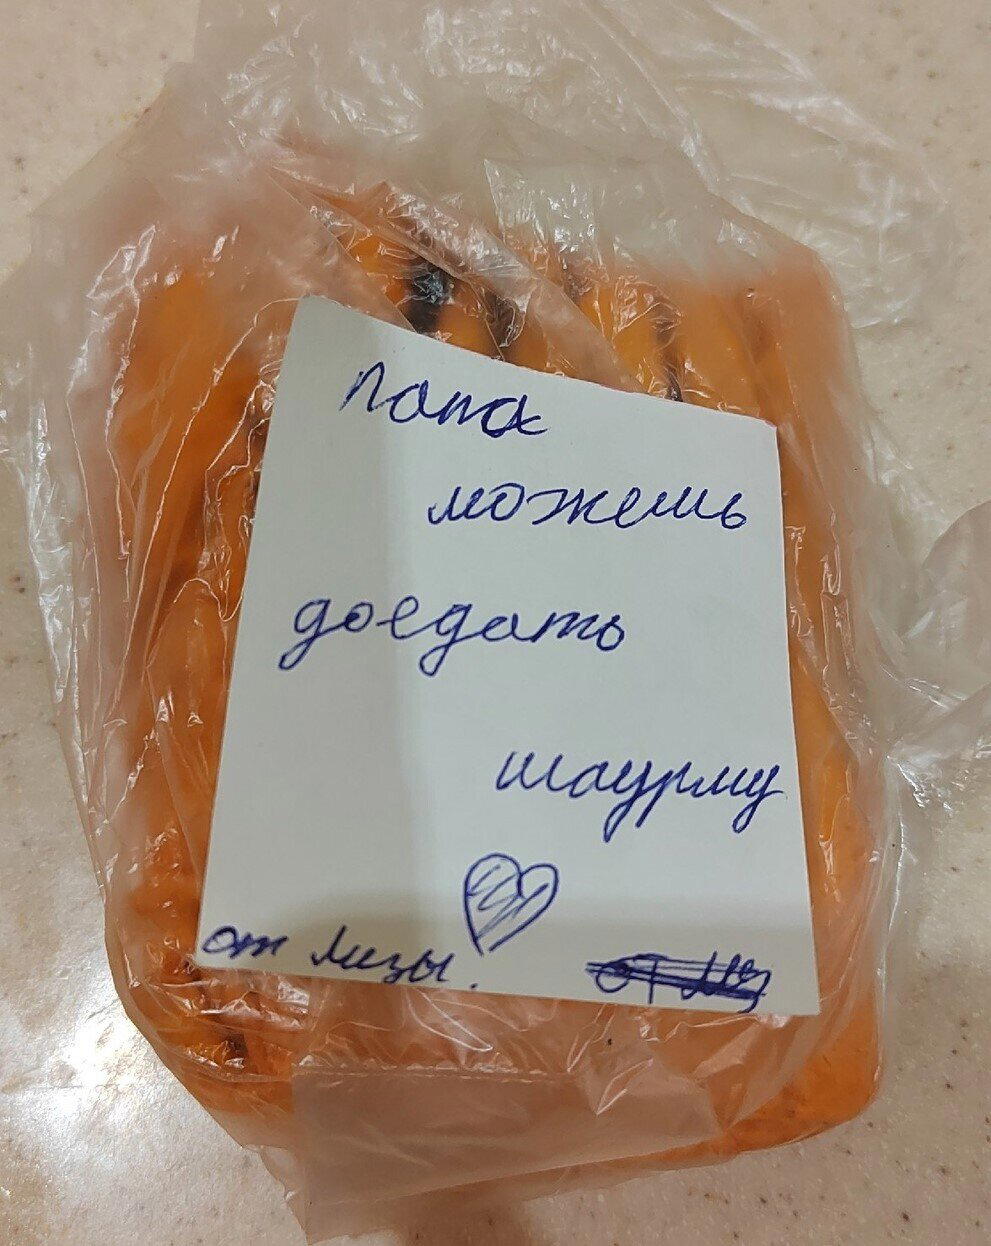 папа
можешь
доедать
шаурму
от Лизы.
от Лиз